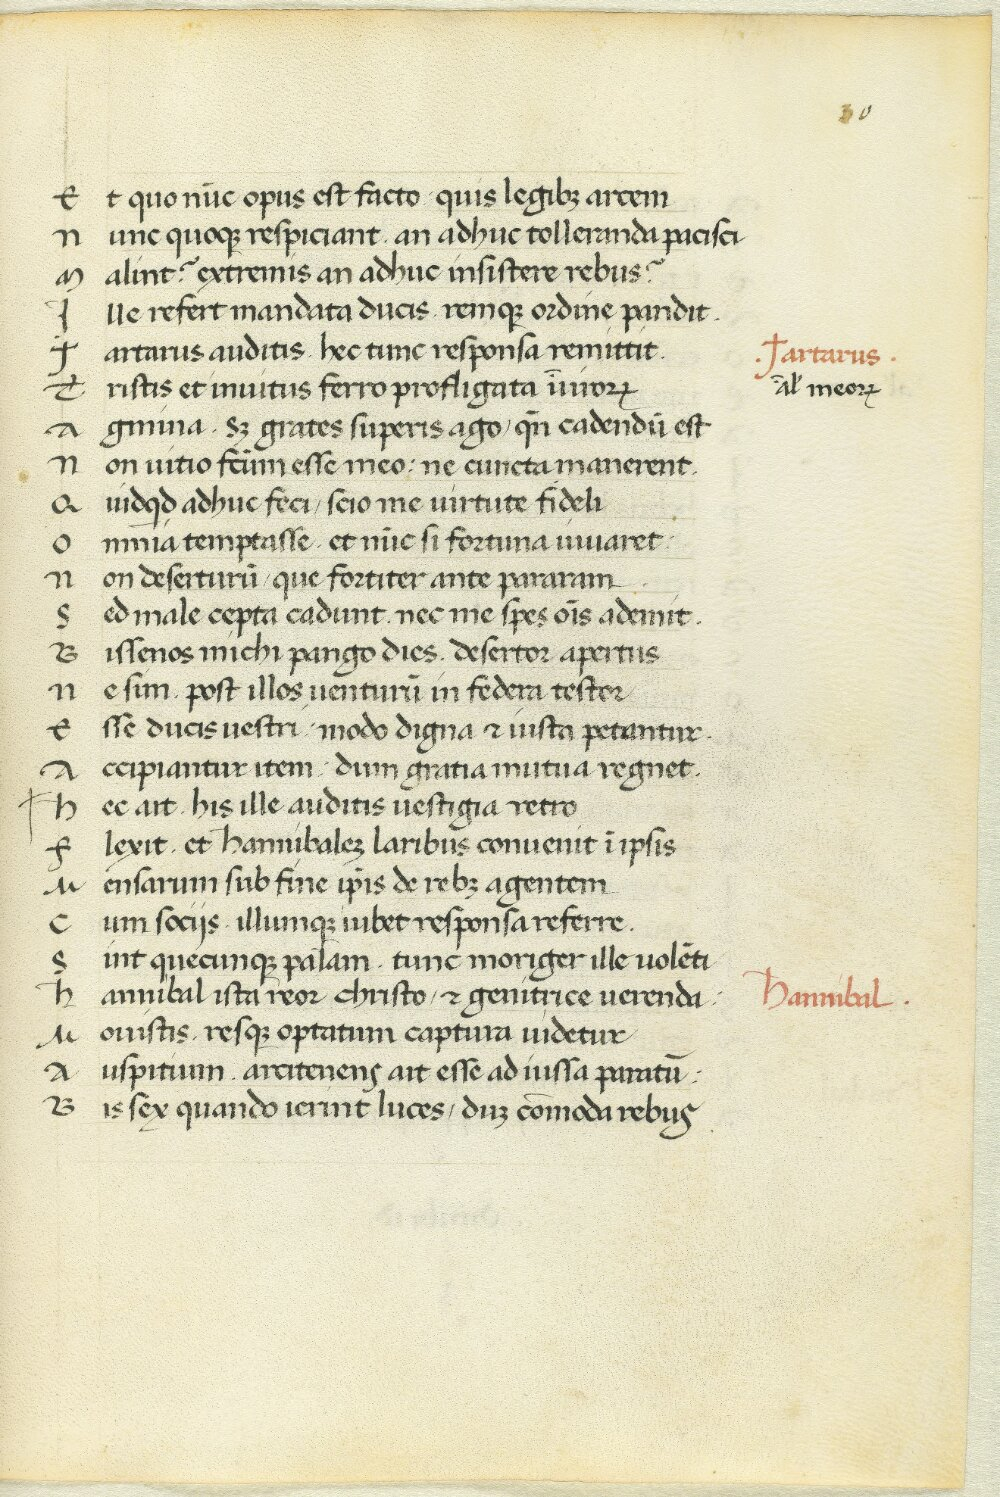 30
Et quo nūc opus est facto · quis legibꝫ arcem
Nunc quoqꝫ respiciant · an adhuc tolleranda pacisci
Malint? extremis an adhuc insistere rebus?
Ille refert mandata ducis · remqꝫ ordine pandit ·
Tartarus auditis · hec tunc responsa remittit ·
·Tartarus·
Tristis et inuitus ferro profligata
al' meoꝝ
Agmina · Sꝫ grates superis ago / qn̄ cadendū est
Non uitio fc̄um esse meo : ne cuncta manerent ·
Quidqd adhuc feci / scio me uirtute fideli
Omnia temptasse · et nūc si fortuna iuuaret ·
Non deserturū / que fortiter ante pararam
Sed male cepta cadunt · nec me spes oīs ademit ·
Bissenos michi pango dies · desertor apertus
Ne sim · post illos uenturū in federa testor
Esse ducis uestri · modo digna ⁊ iusta petantur ·
Accipiantur item · dum gratia mutua regnet ·
Hec ait · his ille auditis uestigia retro
Flexit · et hannibaleꝫ laribus conuenit ī ipsis
Mensarum sub fine ip̄is de rebꝫ agentem
Cum socijs · illumqꝫ iubet responsa referre ·
Sint quecunqꝫ palam · tunc moriger ille uolēti
Hannibal ista reor christo / ⁊ genitrice uerenda ·
Hannibal ·
Mouistis · resqꝫ optatum captura uidetur
Auspitium · arcitenens ait esse ad iussa paratū :
Bis sex quando ierint luces / duꝫ cōmoda rebus